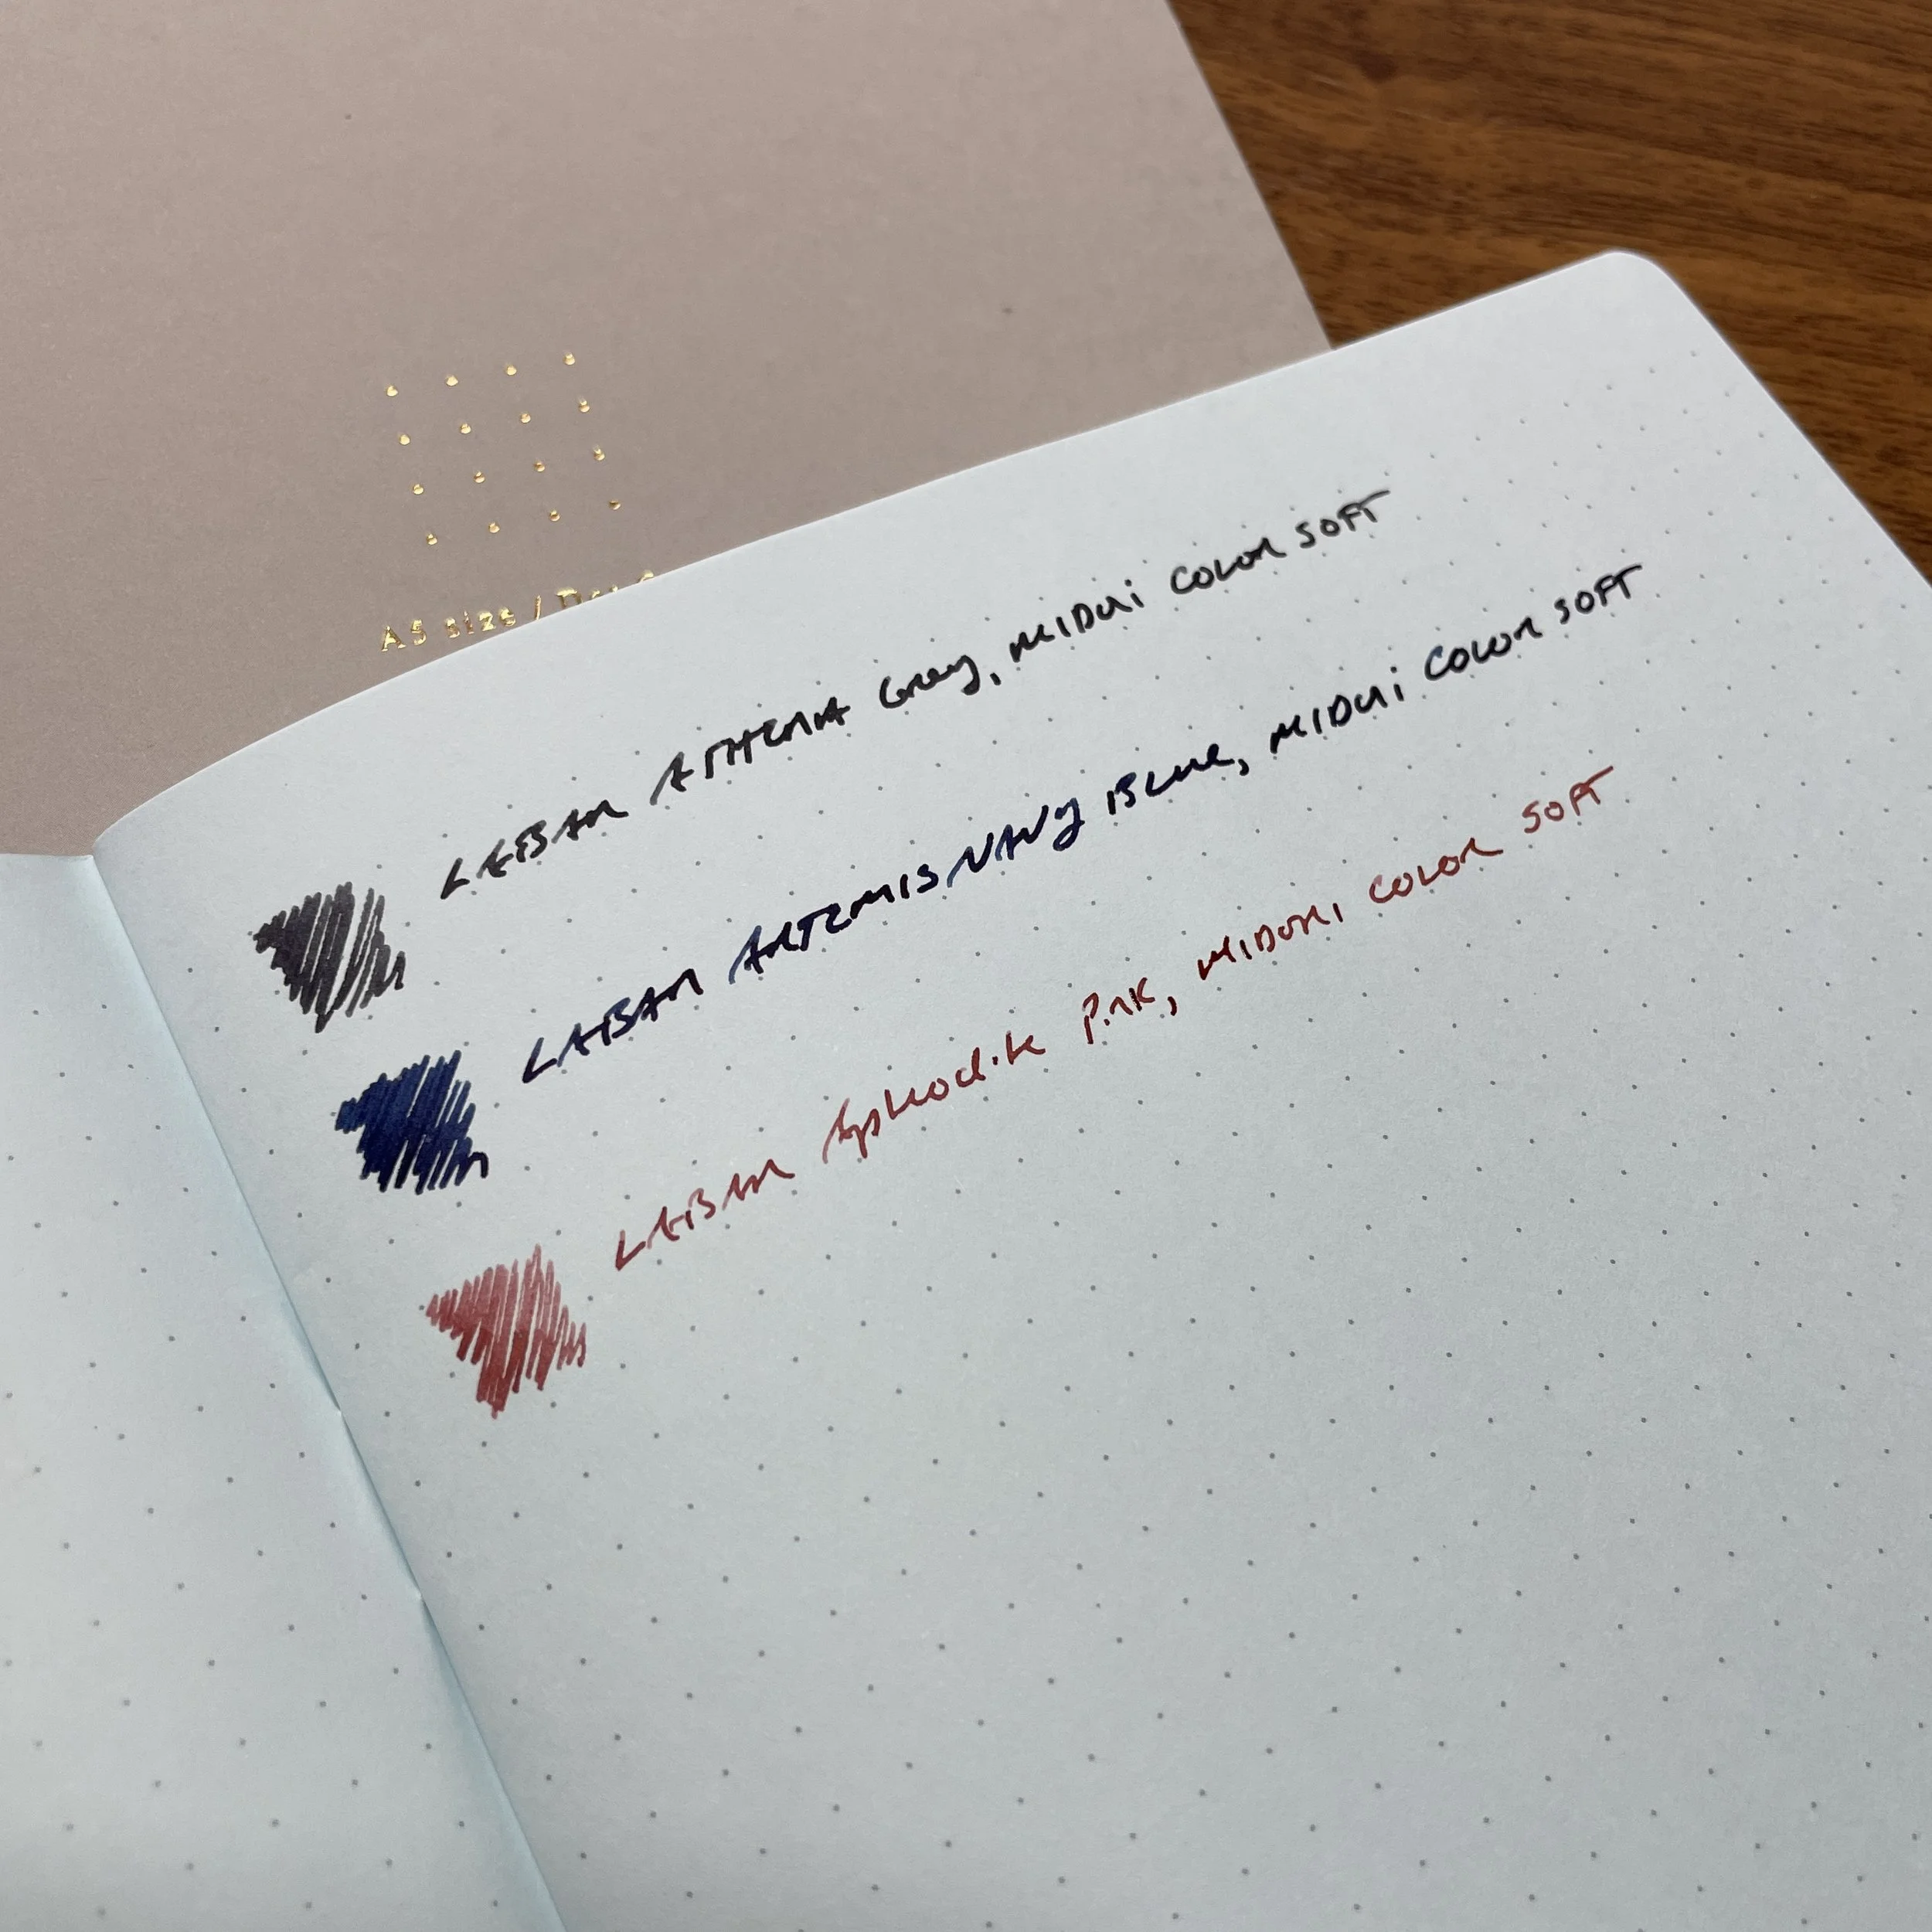 A5 size / Dot
LABAN ATHENA Grey, MIDORI COLOR SOFT
LABAN ARTEMIS NAVY BLUE, MIDORI COLOR SOFT
LABAN Aphrodite Pink, MIDORI COLOR SOFT